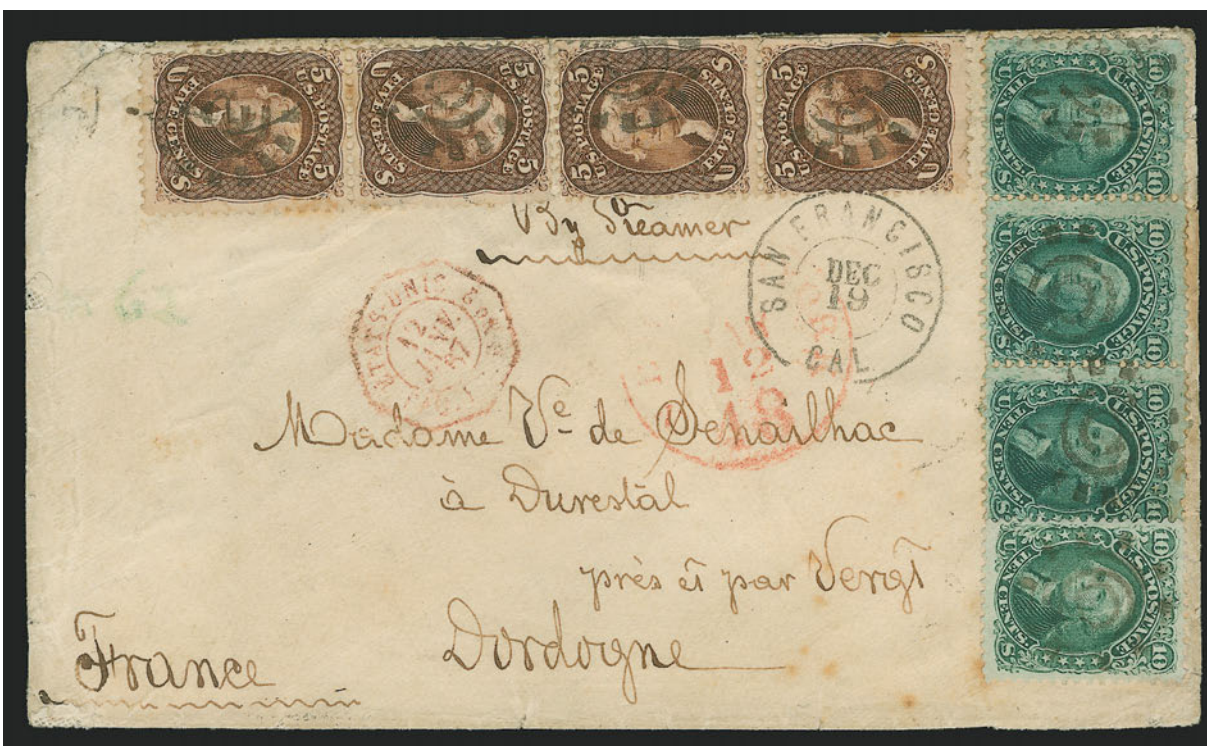 U.S. POSTAGE
5 5
U FIVE CENTS S
U.S. POSTAGE
5 5
U FIVE CENTS S
U.S. POSTAGE
5 5
U FIVE CENTS S
U.S. POSTAGE
5 5
U FIVE CENTS S
10 U.S. POSTAGE 10
U TEN CENTS. S
10 U.S. POSTAGE 10
U TEN CENTS. S
10 U.S. POSTAGE 10
U TEN CENTS. S
10 U.S. POSTAGE 10
U TEN CENTS. S
By Steamer
SAN FRANCISCO
DEC
19
CAL
ETATS-UNIS
12
JANV
12
18
Madame Ve de Senailhac
à Durestal
près et par Vergt
Dordogne
France